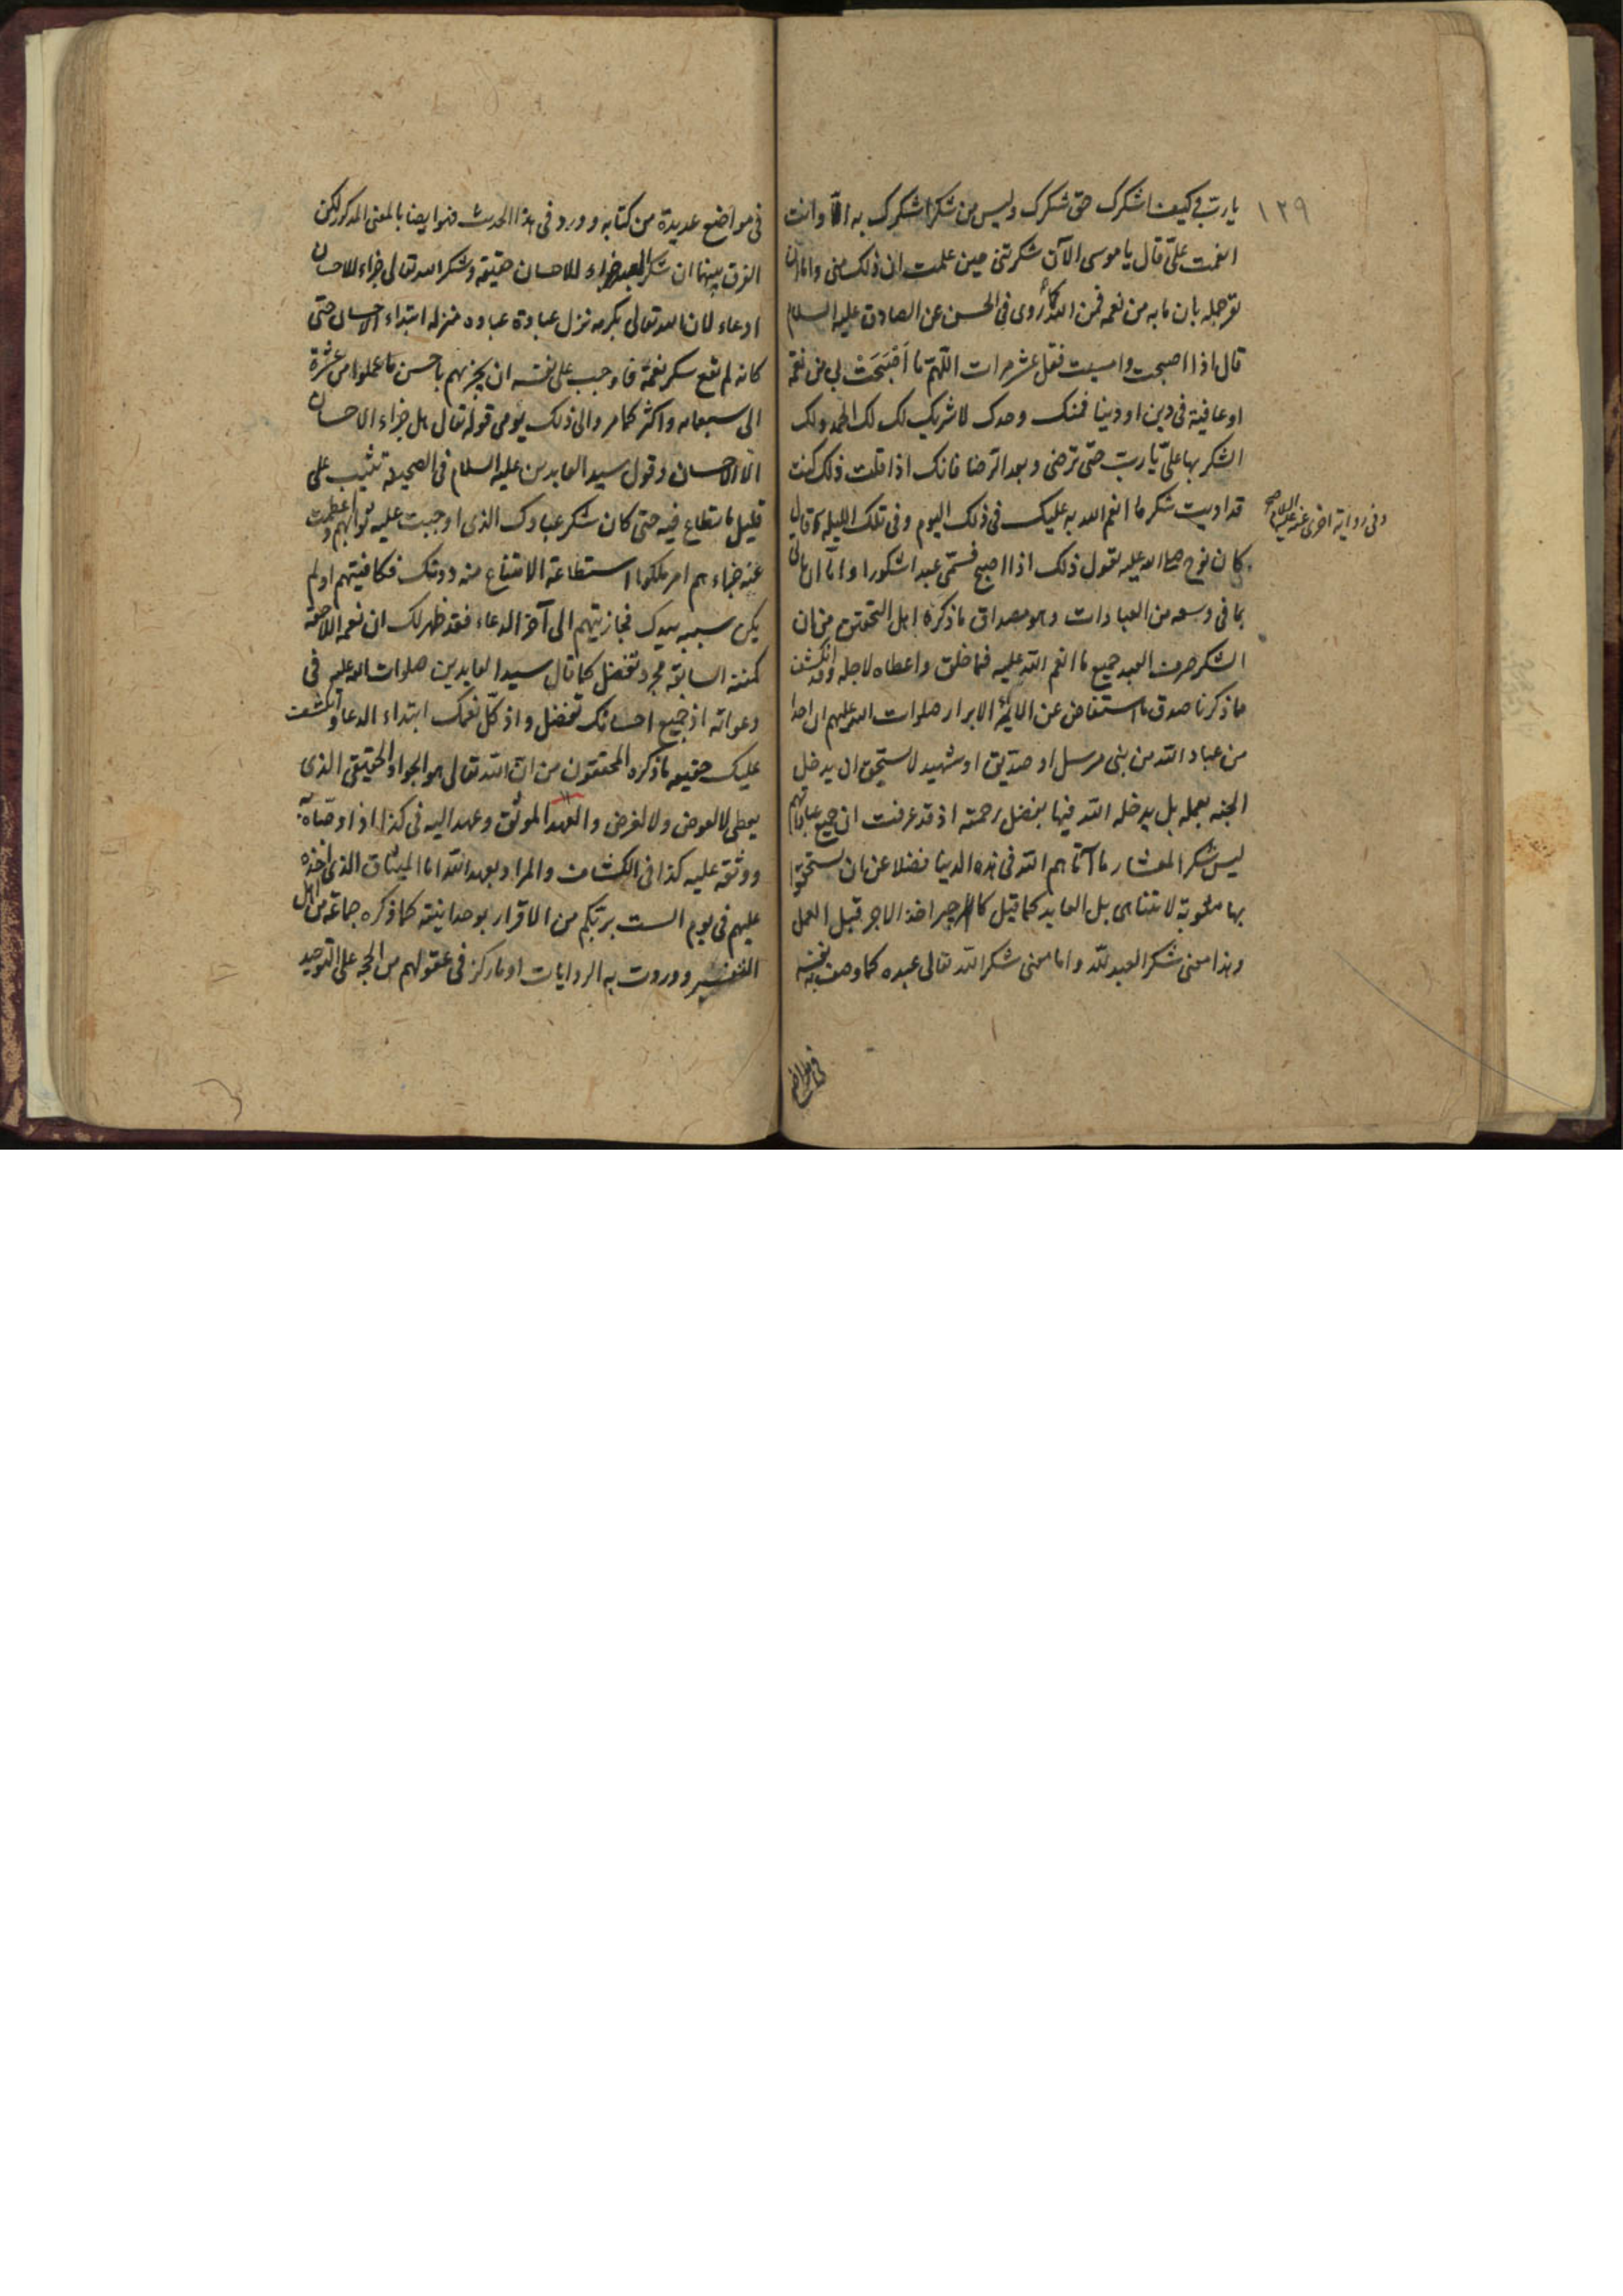 ١٢٩
يا رب فكيف اشكرك حق شكرك وليس من شكر اشكرك به الّا وانت
انعمت علىّ قال يا موسى الآن شكرتنى حين علمت ان ذلك منى واما ان
نوجهه بان ما به من نعمه فمن الله كما روى فى الحسن عن الصادق عليه السلام
قال اذا اصبحت وامسيت فقل عشر مرات اللّهمّ ما اَصْبَحَتْ بى من نعمة
او عافية فى دين او دنيا فمنك وحدك لا شريك لك لك الحمد ولك
الشكر بها علىّ يا ربّ حتى ترضى وبعد الرضا فانك اذا قلت ذلك كنت
قد اديت شكر ما انعم الله به عليك فى ذلك اليوم وفى تلك الليله كما قال
وفى رواية اخرى عنه عليه السلام
كان نوح صلى الله عليه يقول ذلك اذا اصبح فسمّى عبدا شكورا واما ان ياتى
بما فى وسعه من العبادات وهو مصداق ما ذكره اهل التحقيق من ان
الشكر صرف العبد جميع ما انعم الله عليه فيما خلق واعطاه لاجله وقد انكشف
مما ذكرنا صدق ما استفاض عن الائمّة الابرار صلوات الله عليهم ان احدا
من عباد الله من نبى مرسل او صدّيق او شهيد لا يستحق ان يدخل
الجنه بعمله بل يدخله الله فيها بفضل رحمته اذ قد عرفت ان جميع عباداتهم
ليس شكر المعشار ما آتاهم الله فى هذه الدنيا فضلا عن ان يستحقوا
بها مثوبة لا تتناهى بل العابد كما قيل كالاجير اخذ الاجر قبل العمل
وهذا معنى شكر العبد لله واما معنى شكر الله تعالى عبده كما وصف به نفسه
فى مواضع
فى مواضع عديدة من كتابه وورد فى هذا الحديث فهو ايضا بالمعنى المذكور لكن
الفرق بينهما ان شكر العبد جزاء للاحسان حقيقة وشكر الله تعالى جزاء للاحسان
ادعاء لان الله تعالى بكرمه نزل عبادة عباده منزله ابتداء الاحسان حتى
كانه لم تقع شكر نعمة فاوجب على نفسه ان يجزيهم باحسن ما عملوا من عشرة
الى سبعمائه واكثر كما مر والى ذلك يؤمى قوله تعالى هل جزاء الاحسان
الّا الاحسان وقول سيد العابدين عليه السلام فى الصحيفة تثيب على
قليل ما تطاع فيه حتى كان شكر عبادك الذى اوجبت عليه ثوابهم واعظمت
عنه جزاءهم امر ملكوا استطاعة الامتناع منه دونك فكافيتهم او لم
يكن سببه بيدك فجازيتهم الى آخر الدعاء فقد ظهر لك ان نعمه اللاحقة
كمننه السابقة مجرد تفضل كما قال سيد العابدين صلوات الله عليه فى
دعواته اذ جميع احسانك تفضل واذ كلّ نعمك ابتداء الدعا وانكشفت
عليك حقيقه ما ذكره المحققون من انّ الله تعالى هو الجواد الحقيقى الذى
يعطى لا لعوض ولا لغرض والعهد الموثق وعهد اليه فى كذا اذا اوصاه به
ووثقه عليه كذا فى الكشاف والمراد بعهد الله اما الميثاق الذى اخذه
عليهم فى يوم الست بربّكم من الاقرار بوحدانيته كما ذكره جماعة من اهل
التفسير ووردت به الروايات او ما ركز فى عقولهم من الحجه على التوحيد